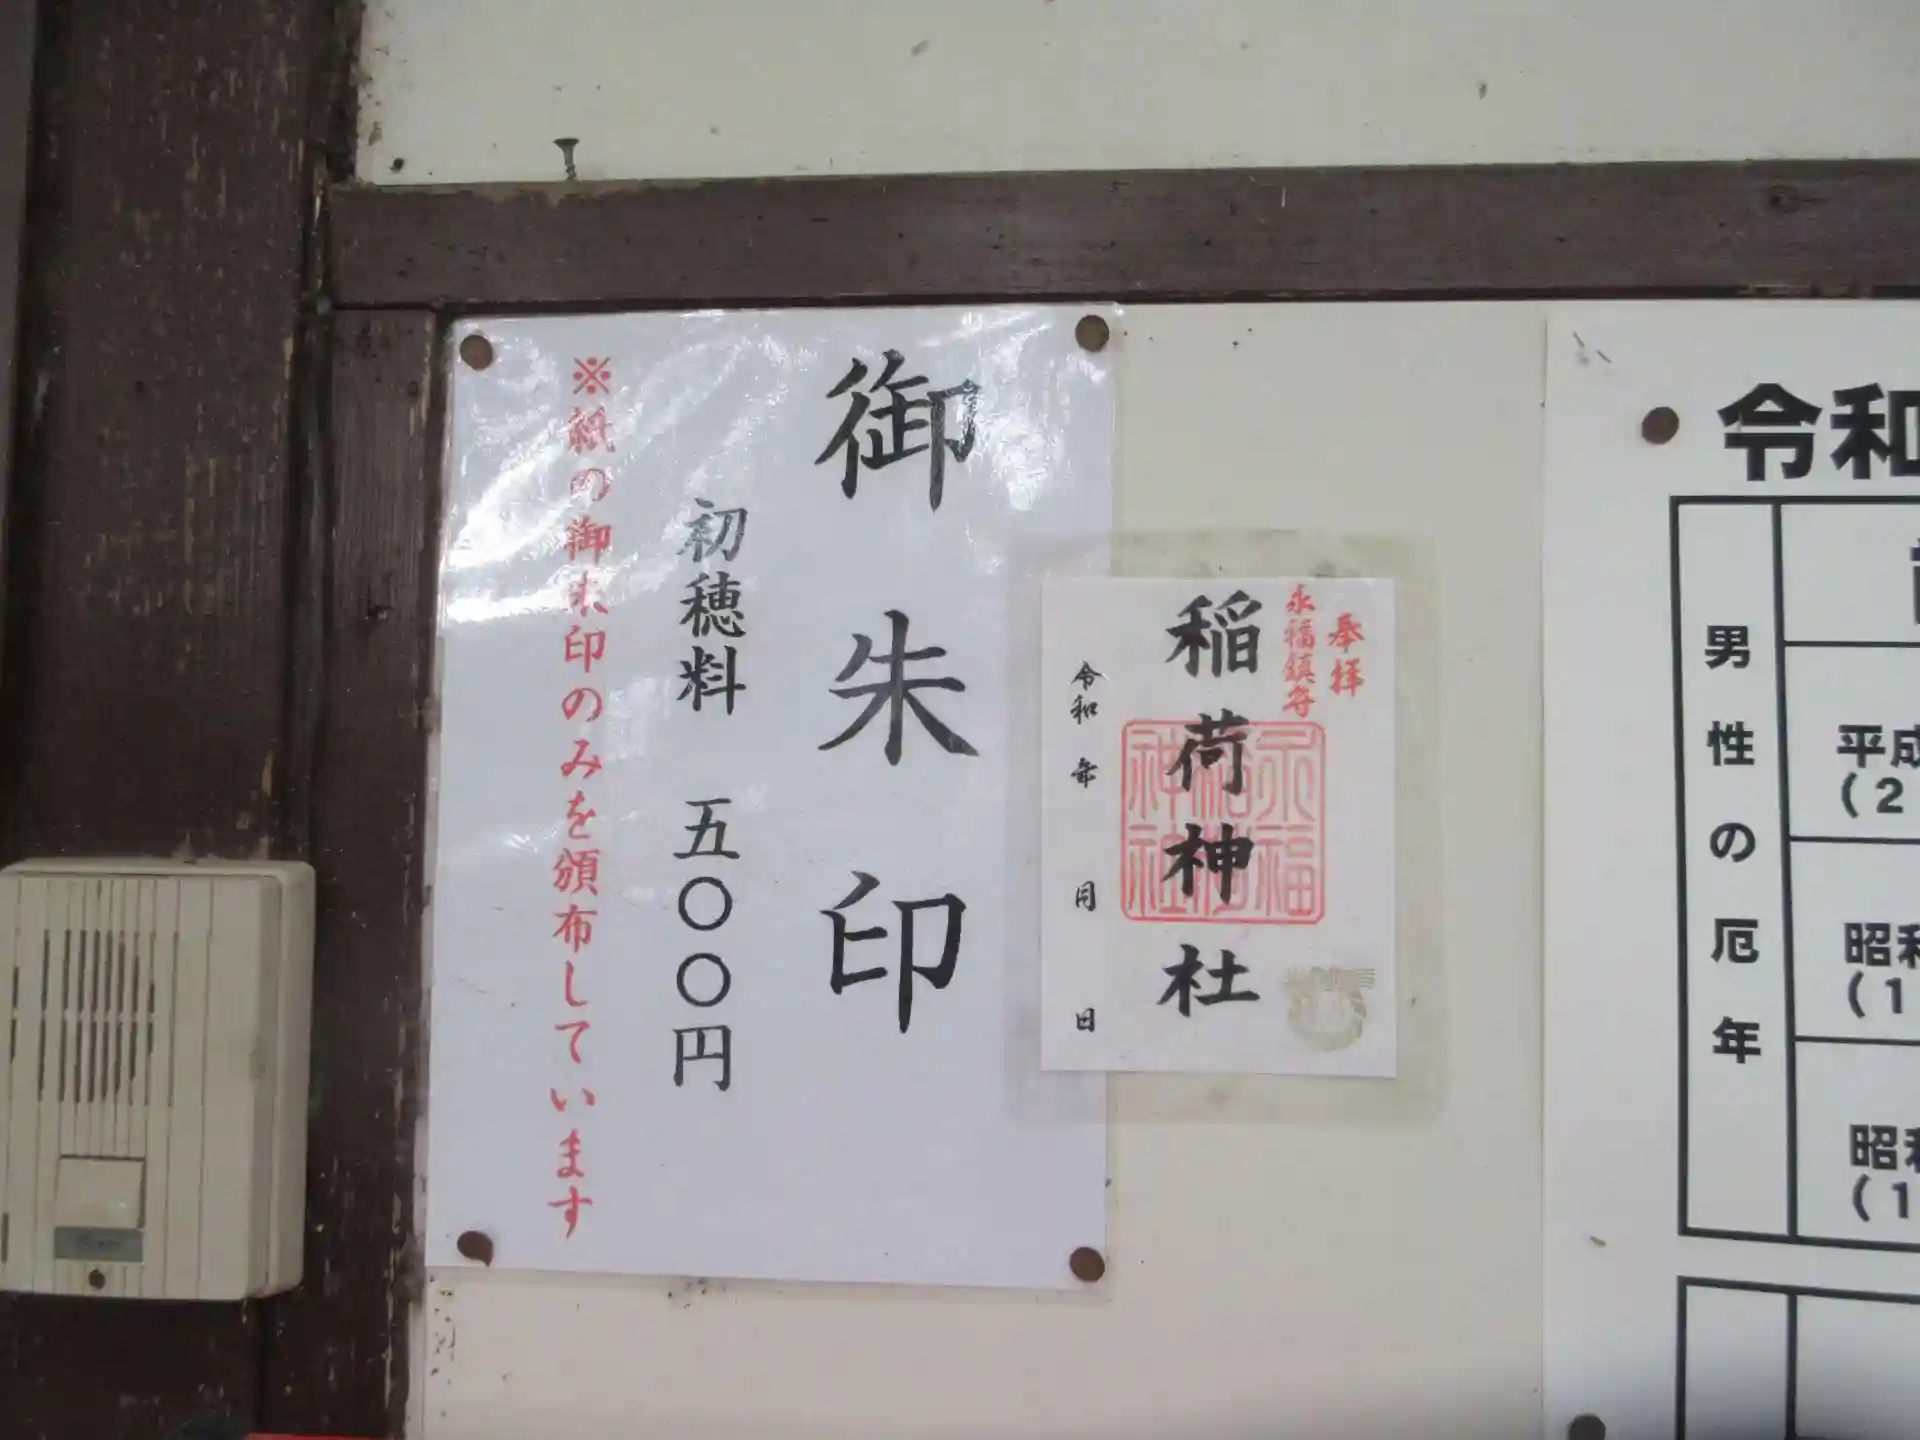 御朱印
初穂料 五〇〇円
※紙の御朱印のみを頒布しています
奉拝
永福鎮守
稲荷神社
永福
稲荷
神社
令和 年 月 日
令和
男性の厄年
平成
(2
昭和
(1
昭和
(1